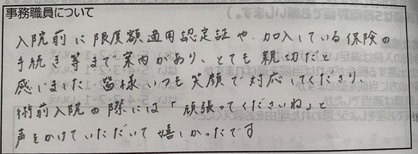 事務職員について
入院前に限度額適用認定証や、加入している保険の
手続き等まで案内があり、とても親切だと
感じました。皆様いつも笑顔で対応してくださり、
術前入院の際には「頑張ってくださいね」と
声をかけていただいて嬉しかったです